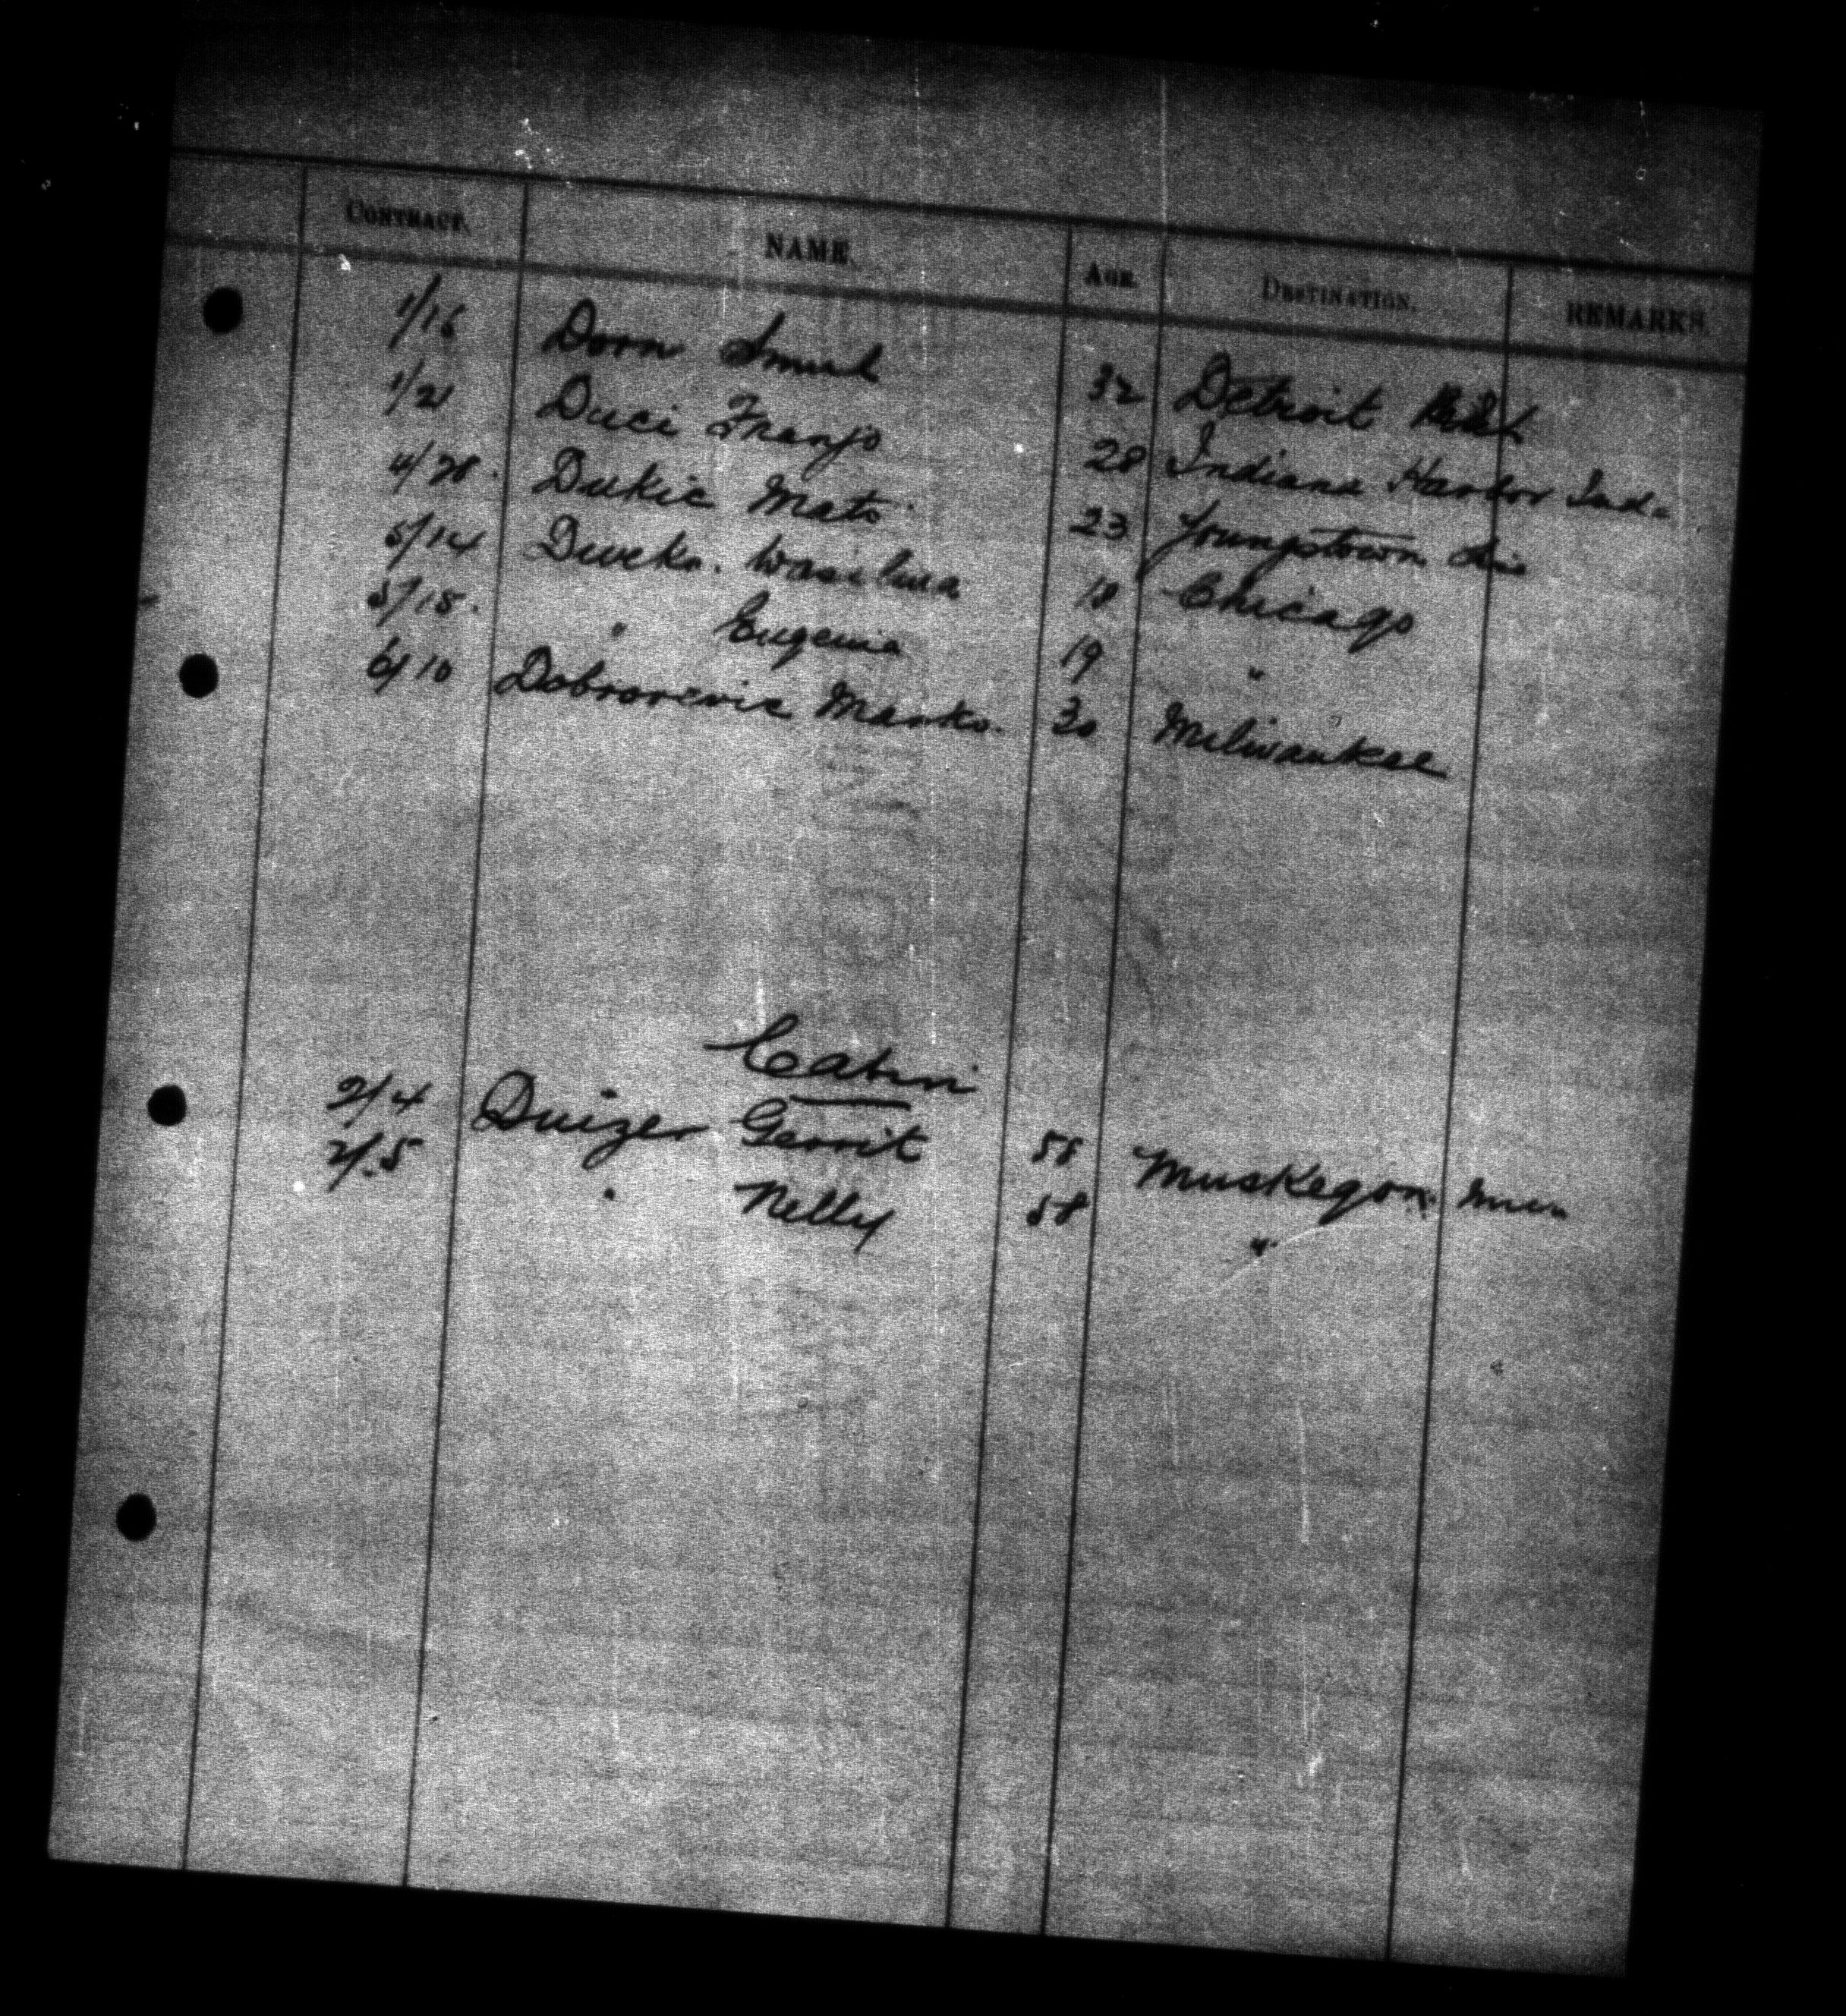 CONTRACT. NAME. AGE. DESTINATION. REMARKS.
1/16 Dorn 32 Detroit
1/21 Duci Franjo 28 Indiana Harbor Ind.
4/28. Dukic Mato 23 Youngstown
5/14 Wasilina 18 Chicago
5/15. " Eugenia 19 "
6/10 Dobrorevic Marko. 30 Milwaukee
Cabin
2/4 Duizer Gerrit 55 Muskegon
2/5 " Nelly 58 "